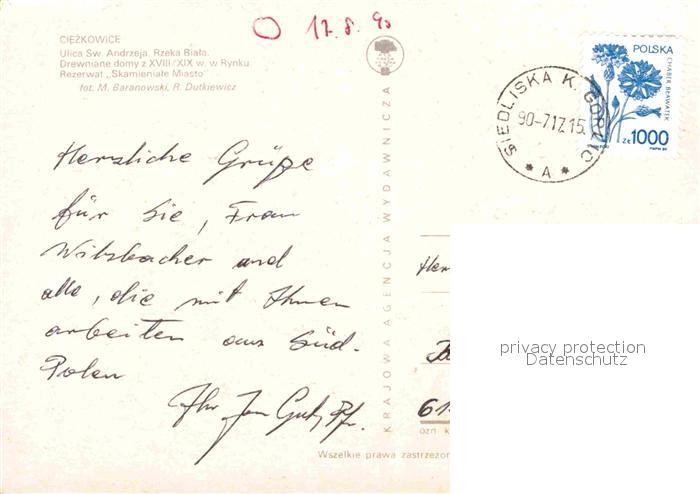 CIĘŻKOWICE
Ulica Św. Andrzeja. Rzeka Biała.
Drewniane domy z XVIII/XIX w. w Rynku.
Rezerwat „Skamieniałe Miasto"
fot. M. Baranowski, R. Dutkiewicz
17. 8. 90
Herzliche Grüße
für Sie, Frau
Witzbacher und
alle, die mit Ihnen
arbeiten aus Süd-
Polen
Ihr Jan
KRAJOWA AGENCJA WYDAWNICZA
SIEDLISKA K. GORLIC
90-717.15
* A *
POLSKA
CHABER BŁAWATEK
ZŁ 1000
Her
61
ozn k
Wszelkie prawa zastrzeżon
privacy protection
Datenschutz